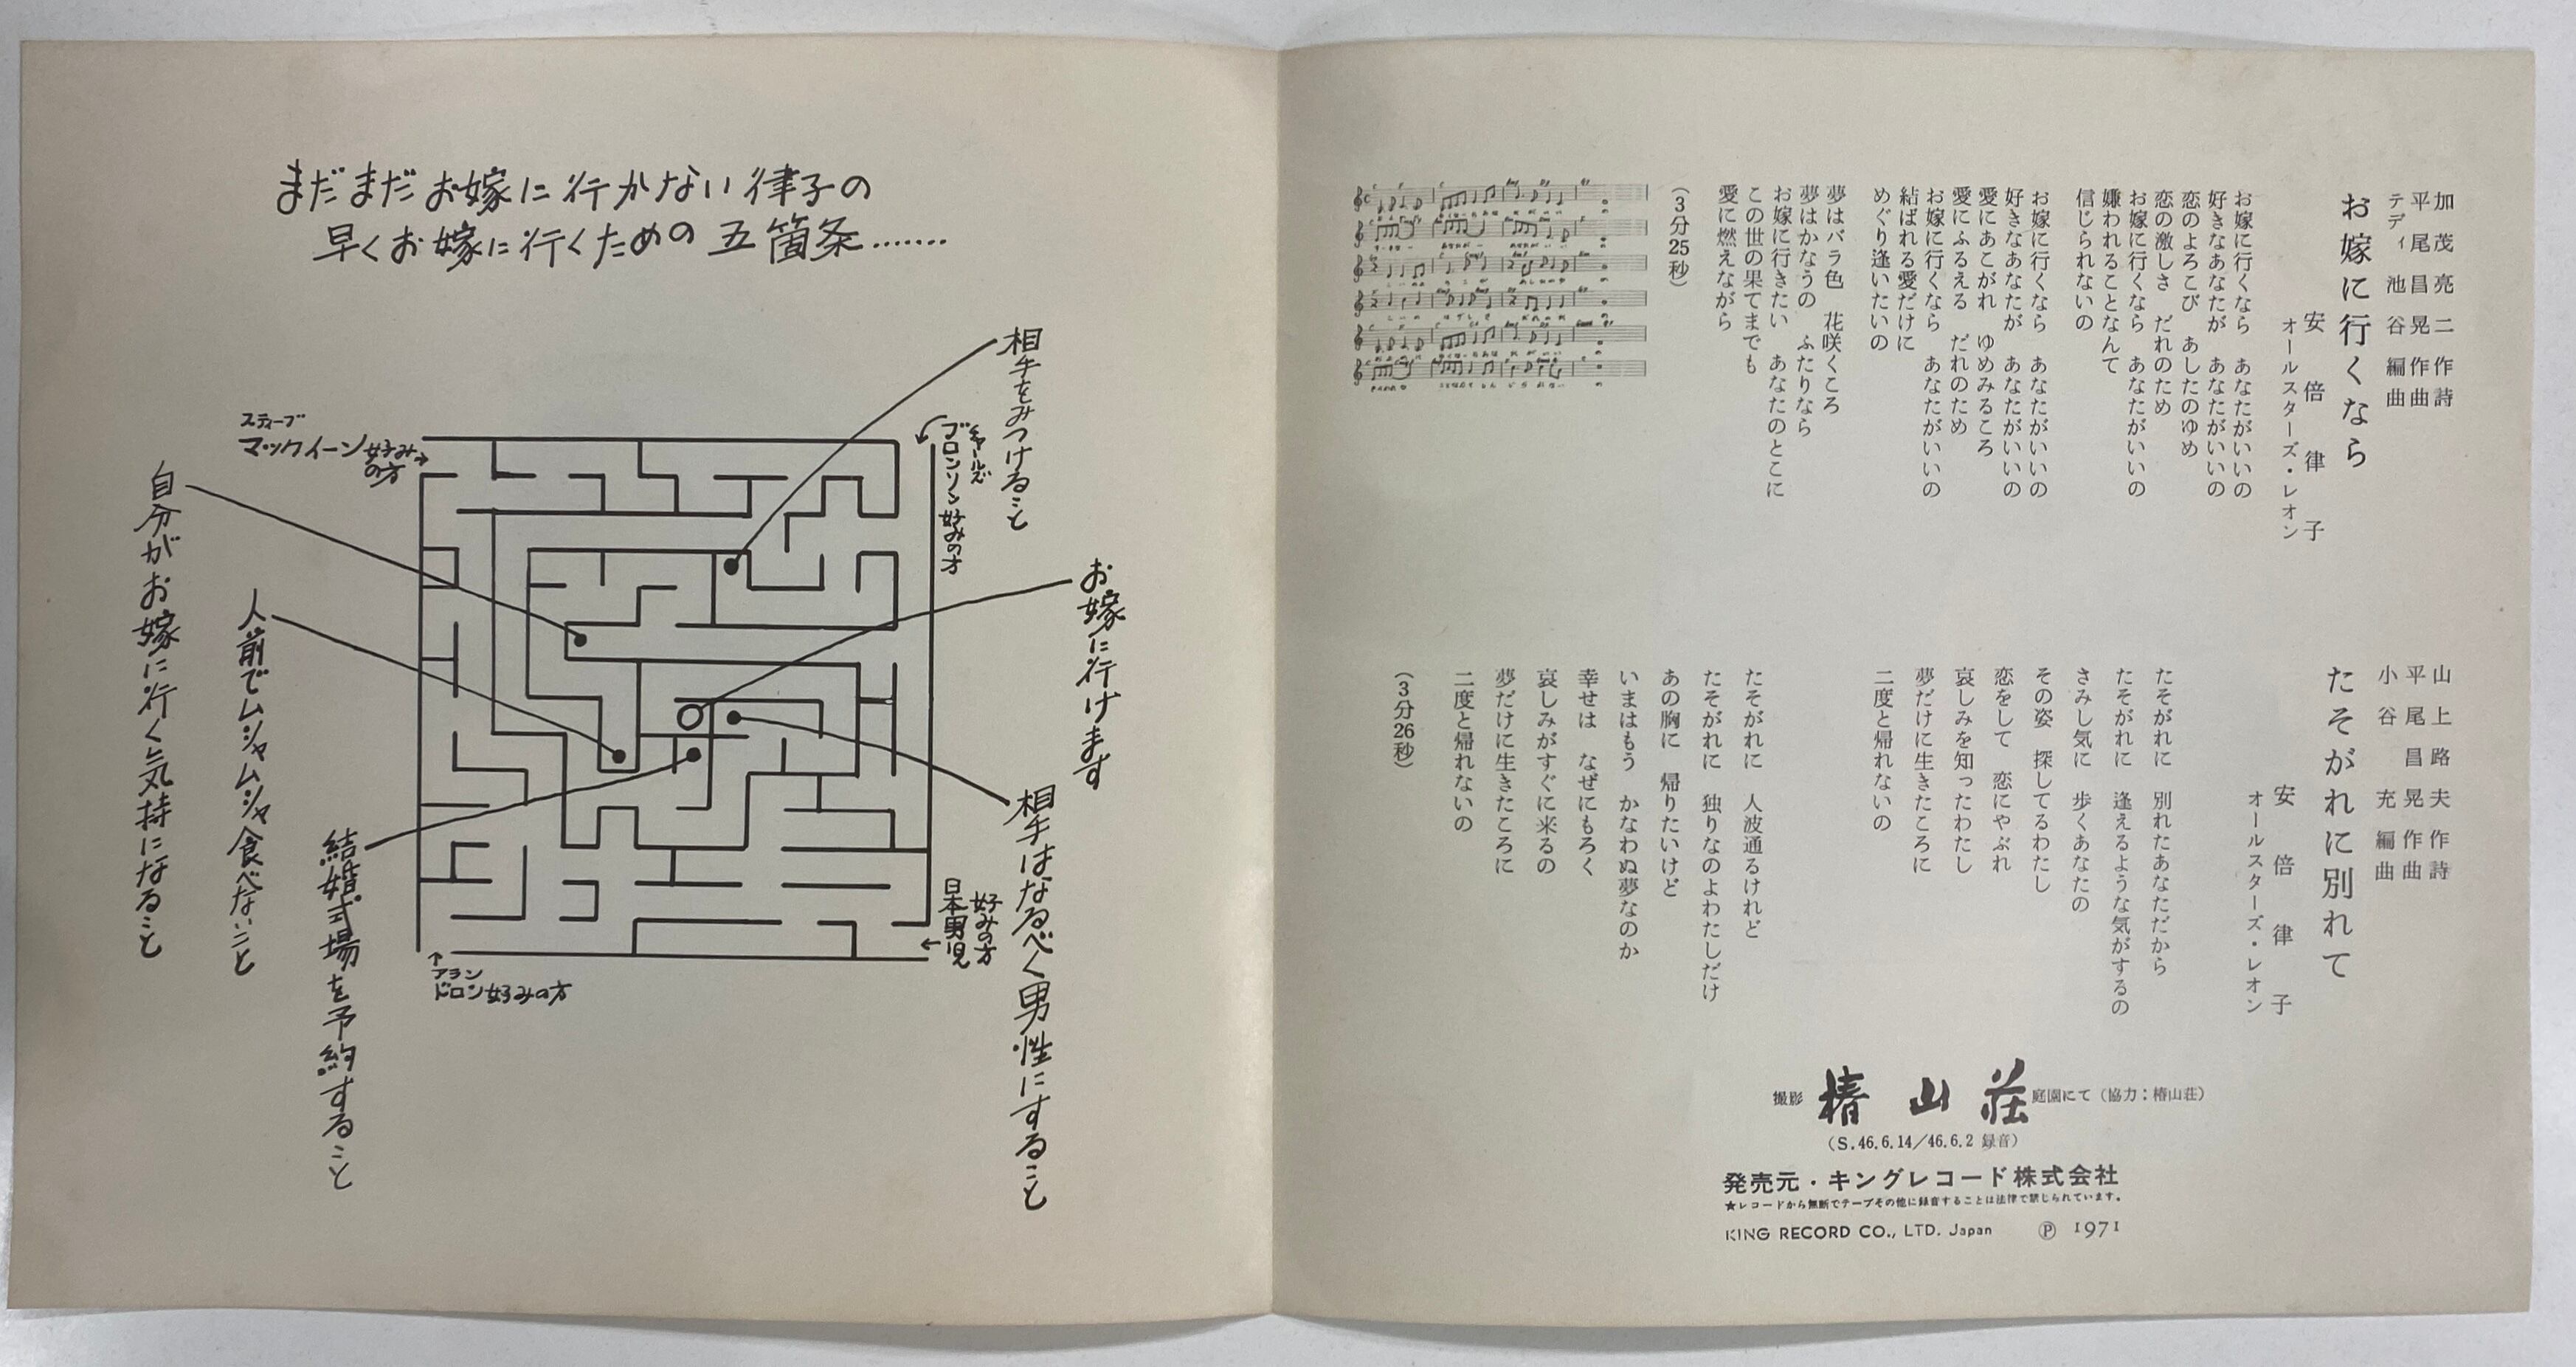 まだまだお嫁に行かない律子の
早くお嫁に行くための五箇条.......
相手をみつけること
お嫁に行けます
相手はなるべく男性にすること
スティーブ
マックイーン好みの方
チャールズ
ブロンソン好みの方
日本男児
好みの方
アラン
ドロン好みの方
自分がお嫁に行く気持になること
人前でムシャムシャ食べないこと
結婚式場を予約すること
加茂亮二作詩
平尾昌晃作曲
テディ池谷編曲
お嫁に行くなら
安倍律子
オールスターズ・レオン
お嫁に行くなら　あなたがいいの
好きなあなたが　あなたがいいの
恋のよろこび　あしたのゆめ
恋の激しさ　だれのため
お嫁に行くなら　あなたがいいの
嫌われることなんて
信じられないの
お嫁に行くなら　あなたがいいの
好きなあなたが　あなたがいいの
愛にあこがれ　ゆめみるころ
愛にふるえる　だれのため
お嫁に行くなら　あなたがいいの
結ばれる愛だけに
めぐり逢いたいの
夢はバラ色　花咲くころ
夢はかなうの　ふたりなら
お嫁に行きたい　あなたのとこに
この世の果てまでも
愛に燃えながら
（3分25秒）
山上路夫作詩
平尾昌晃作曲
小谷充編曲
たそがれに別れて
安倍律子
オールスターズ・レオン
たそがれに　別れたあなただから
たそがれに　逢えるような気がするの
さみし気に　歩くあなたの
その姿　探してるわたし
恋をして　恋にやぶれ
哀しみを知ったわたし
夢だけに生きたころに
二度と帰れないの
たそがれに　人波通るけれど
たそがれに　独りなのよわたしだけ
あの胸に　帰りたいけど
いまはもう　かなわぬ夢なのか
幸せは　なぜにもろく
哀しみがすぐに来るの
夢だけに生きたころに
二度と帰れないの
（3分26秒）
撮影 椿山荘 庭園にて（協力：椿山荘）
（S.46.6.14／46.6.2 録音）
発売元・キングレコード株式会社
★レコードから無断でテープその他に録音することは法律で禁じられています。
KING RECORD CO., LTD. Japan Ⓟ 1971